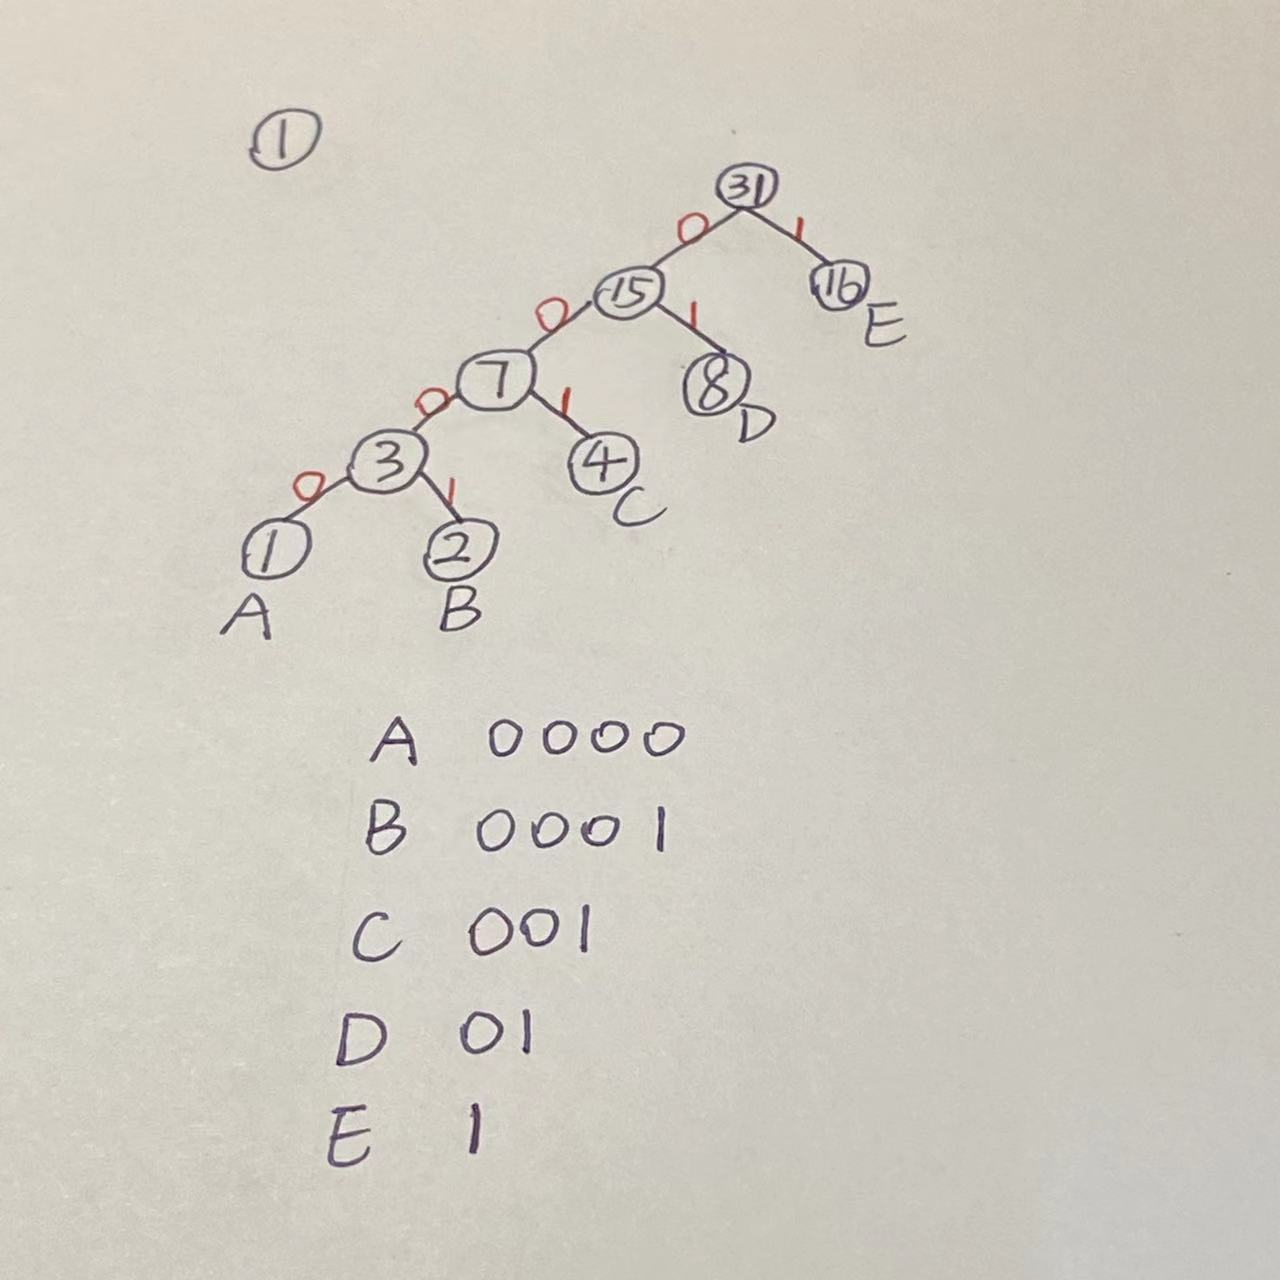 ①
31
0 1
15 16
E
0 1
7 8
D
0 1
3 4
C
0 1
1 2
A B
A 0000
B 0001
C 001
D 01
E 1